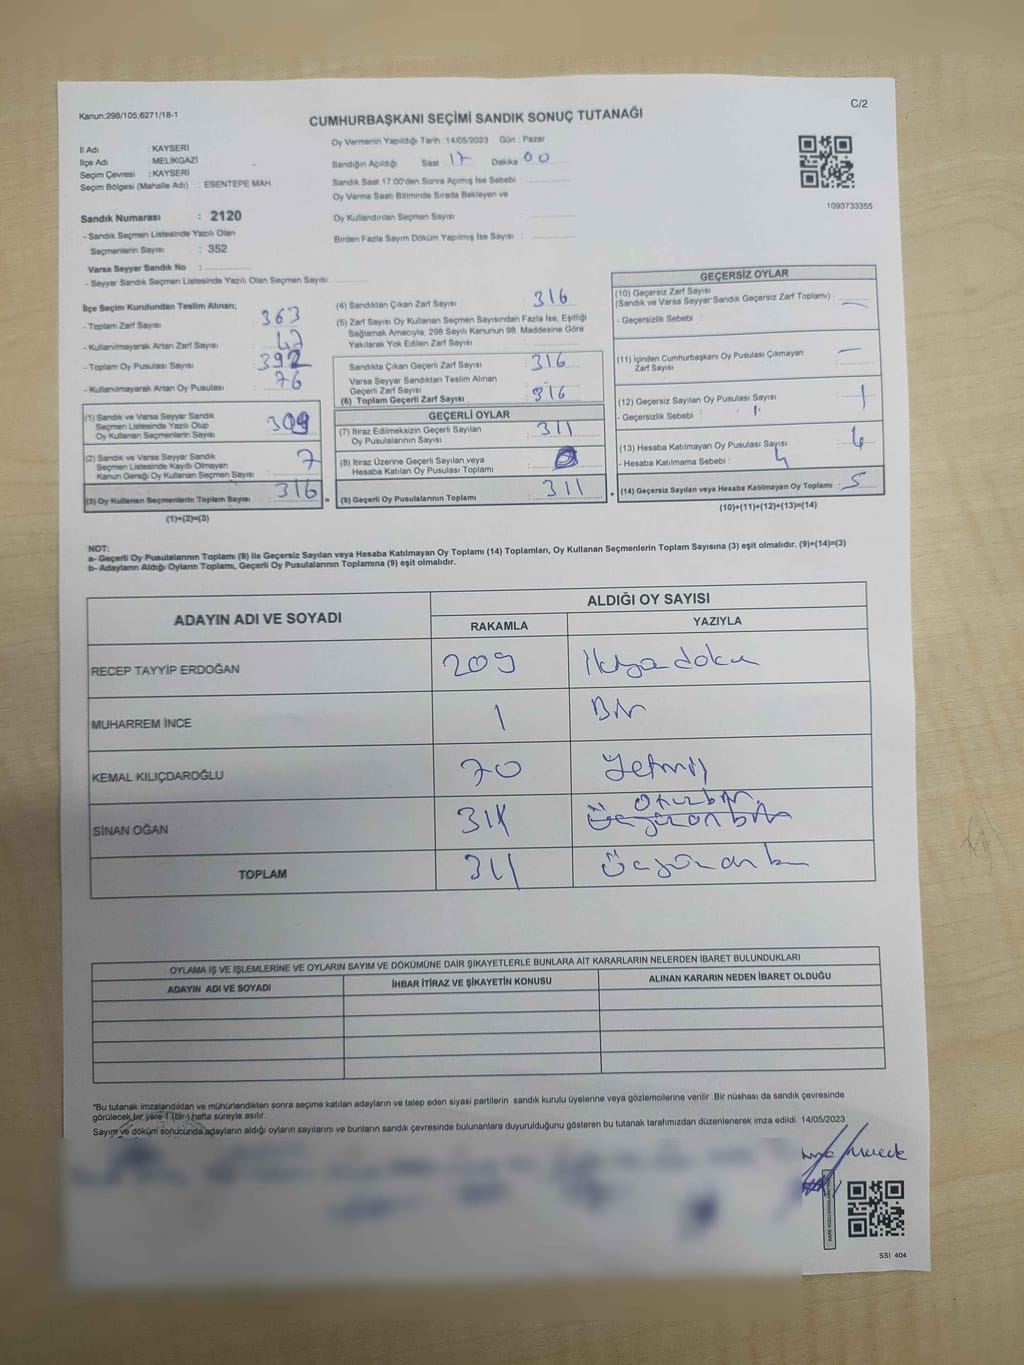 Kanun:298/105;6271/18-1
C/2
CUMHURBAŞKANI SEÇİMİ SANDIK SONUÇ TUTANAĞI
İl Adı : KAYSERİ
İlçe Adı : MELİKGAZİ
Seçim Çevresi : KAYSERİ
Seçim Bölgesi (Mahalle Adı) : ESENTEPE MAH.
Sandık Numarası : 2120
- Sandık Seçmen Listesinde Yazılı Olan
Seçmenlerin Sayısı : 352
Varsa Seyyar Sandık No :
- Seyyar Sandık Seçmen Listesinde Yazılı Olan Seçmen Sayısı :
Oy Vermenin Yapıldığı Tarih : 14/05/2023 Gün : Pazar
Sandığın Açıldığı Saat 17 Dakika 00
Sandık Saat 17:00'den Sonra Açımış İse Sebebi :
Oy Verme Saati Bitiminde Sırada Bekleyen ve
Oy Kullandırılan Seçmen Sayısı :
Birden Fazla Sayım Döküm Yapılmış İse Sayısı :
1093733355
İlçe Seçim Kurulundan Teslim Alınan;
- Toplam Zarf Sayısı : 363
- Kullanılmayarak Artan Zarf Sayısı : 47
- Toplam Oy Pusulası Sayısı : 392
- Kullanılmayarak Artan Oy Pusulası : 76
(1) Sandık ve Varsa Seyyar Sandık
Seçmen Listesinde Yazılı Olup
Oy Kullanan Seçmenlerin Sayısı : 309
(2) Sandık ve Varsa Seyyar Sandık
Seçmen Listesinde Kayıtlı Olmayan
Kanun Gereği Oy Kullanan Seçmen Sayısı : 7
(3) Oy Kullanan Seçmenlerin Toplam Sayısı : 316
(1)+(2)=(3)
(4) Sandıktan Çıkan Zarf Sayısı : 316
(5) Zarf Sayısı Oy Kullanan Seçmen Sayısından Fazla İse, Eşitliği
Sağlamak Amacıyla, 298 Sayılı Kanunun 98. Maddesine Göre
Yakılarak Yok Edilen Zarf Sayısı :
Sandıkta Çıkan Geçerli Zarf Sayısı : 316
Varsa Seyyar Sandıktan Teslim Alınan
Geçerli Zarf Sayısı :
(6) Toplam Geçerli Zarf Sayısı : 316
GEÇERLİ OYLAR
(7) İtiraz Edilmeksizin Geçerli Sayılan
Oy Pusulalarının Sayısı : 311
(8) İtiraz Üzerine Geçerli Sayılan veya
Hesaba Katılan Oy Pusulası Toplamı :
(9) Geçerli Oy Pusulalarının Toplamı : 311
GEÇERSİZ OYLAR
(10) Geçersiz Zarf Sayısı
(Sandık ve Varsa Seyyar Sandık Geçersiz Zarf Toplamı) : —
- Geçersizlik Sebebi :
(11) İçinden Cumhurbaşkanı Oy Pusulası Çıkmayan
Zarf Sayısı : —
(12) Geçersiz Sayılan Oy Pusulası Sayısı : 1
- Geçersizlik Sebebi : 1
(13) Hesaba Katılmayan Oy Pusulası Sayısı : 4
- Hesaba Katılmama Sebebi : 4
(14) Geçersiz Sayılan veya Hesaba Katılmayan Oy Toplamı : 5
(10)+(11)+(12)+(13)=(14)
NOT:
a- Geçerli Oy Pusulalarının Toplamı (9) ile Geçersiz Sayılan veya Hesaba Katılmayan Oy Toplamı (14) Toplamları, Oy Kullanan Seçmenlerin Toplam Sayısına (3) eşit olmalıdır. (9)+(14)=(3)
b- Adayların Aldığı Oyların Toplamı, Geçerli Oy Pusulalarının Toplamına (9) eşit olmalıdır.
ADAYIN ADI VE SOYADI
ALDIĞI OY SAYISI
RAKAMLA YAZIYLA
RECEP TAYYİP ERDOĞAN 209
MUHARREM İNCE 1 Bir
KEMAL KILIÇDAROĞLU 70 Yetmiş
SİNAN OĞAN 31 Otuzbir
TOPLAM 311
OYLAMA İŞ VE İŞLEMLERİNE VE OYLARIN SAYIM VE DÖKÜMÜNE DAİR ŞİKAYETLERLE BUNLARA AİT KARARLARIN NELERDEN İBARET BULUNDUKLARI
ADAYIN ADI VE SOYADI İHBAR İTİRAZ VE ŞİKAYETİN KONUSU ALINAN KARARIN NEDEN İBARET OLDUĞU
*Bu tutanak imzalandıktan ve mühürlendikten sonra seçime katılan adayların ve talep eden siyasi partilerin sandık kurulu üyelerine veya gözlemcilerine verilir. Bir nüshası da sandık çevresinde
görülecek bir yere 1 (bir) hafta süreyle asılır.
Sayım ve döküm sonucunda adayların aldığı oyların sayılarını ve bunların sandık çevresinde bulunanlara duyurulduğunu gösteren bu tutanak tarafımızdan düzenlenerek imza edildi. 14/05/2023
SSI 404